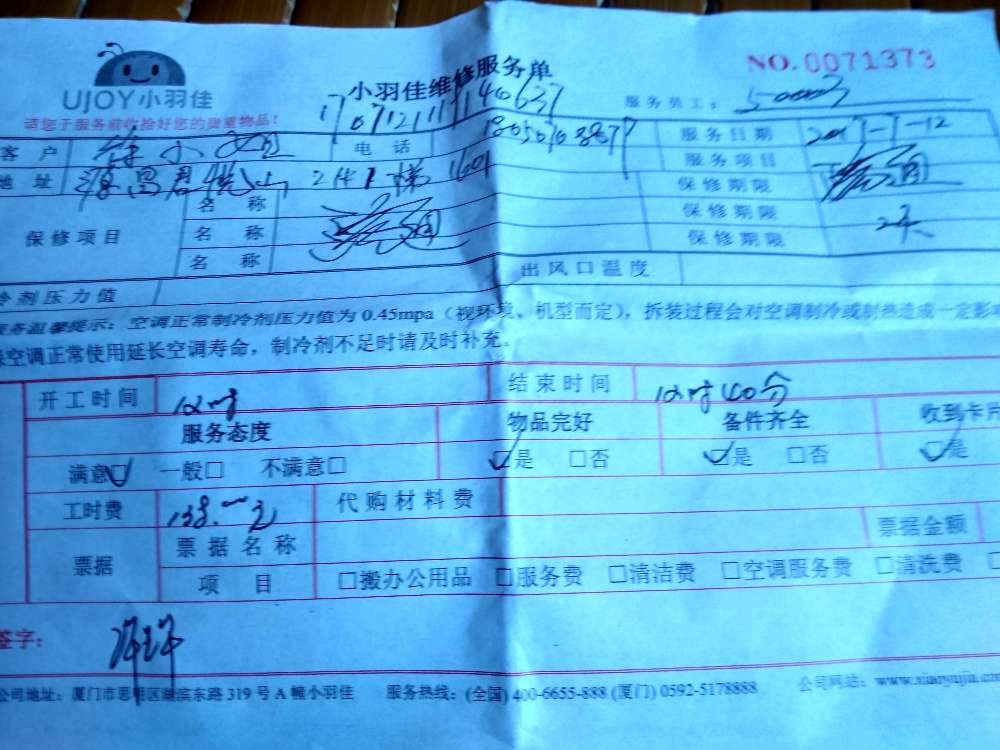 UJOY小羽佳
请您于服务前收拾好您的贵重物品!
小羽佳维修服务单
NO.0071373
170712111140637
服务员工: 50003
客户 小 电话 服务日期 2017-7-12
地址 源昌君悦山 2#1梯1601 服务项目
保修项目 名称 保修期限
名称 保修期限
名称 保修期限
冷剂压力值 出风口温度
服务温馨提示: 空调正常制冷剂压力值为 0.45mpa (视环境、机型而定), 拆装过程会对空调制冷或制热造成一定影
空调正常使用延长空调寿命, 制冷剂不足时请及时补充。
开工时间 12时 结束时间 12时40分
服务态度 物品完好 备件齐全 收到卡片
满意☑ 一般□ 不满意□ ☑是 □否 ☑是 □否 ☑是
工时费 138.一元 代购材料费
票据 票据名称 票据金额
项目 □搬办公用品 □服务费 □清洁费 □空调服务费 □清洗费
签字:
公司地址: 厦门市思明区湖滨东路 319 号 A 幢小羽佳 服务热线: (全国) 400-6655-888 (厦门) 0592-5178888 公司网站: www.xiaoyujia.com